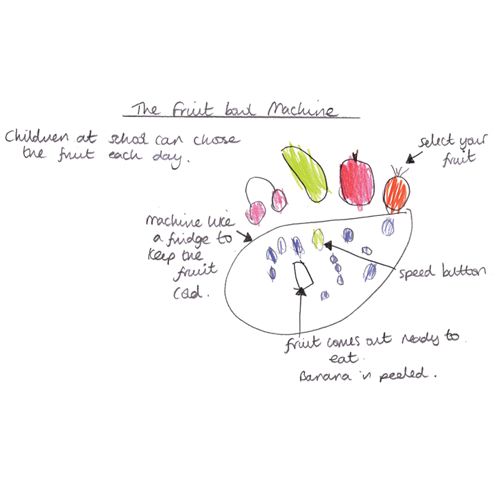 The Fruit bowl Machine
Children at school can choose
the fruit each day.
select your
fruit
machine like
a fridge to
keep the
fruit
cold.
speed button
fruit comes out ready to
eat.
Banana is peeled.